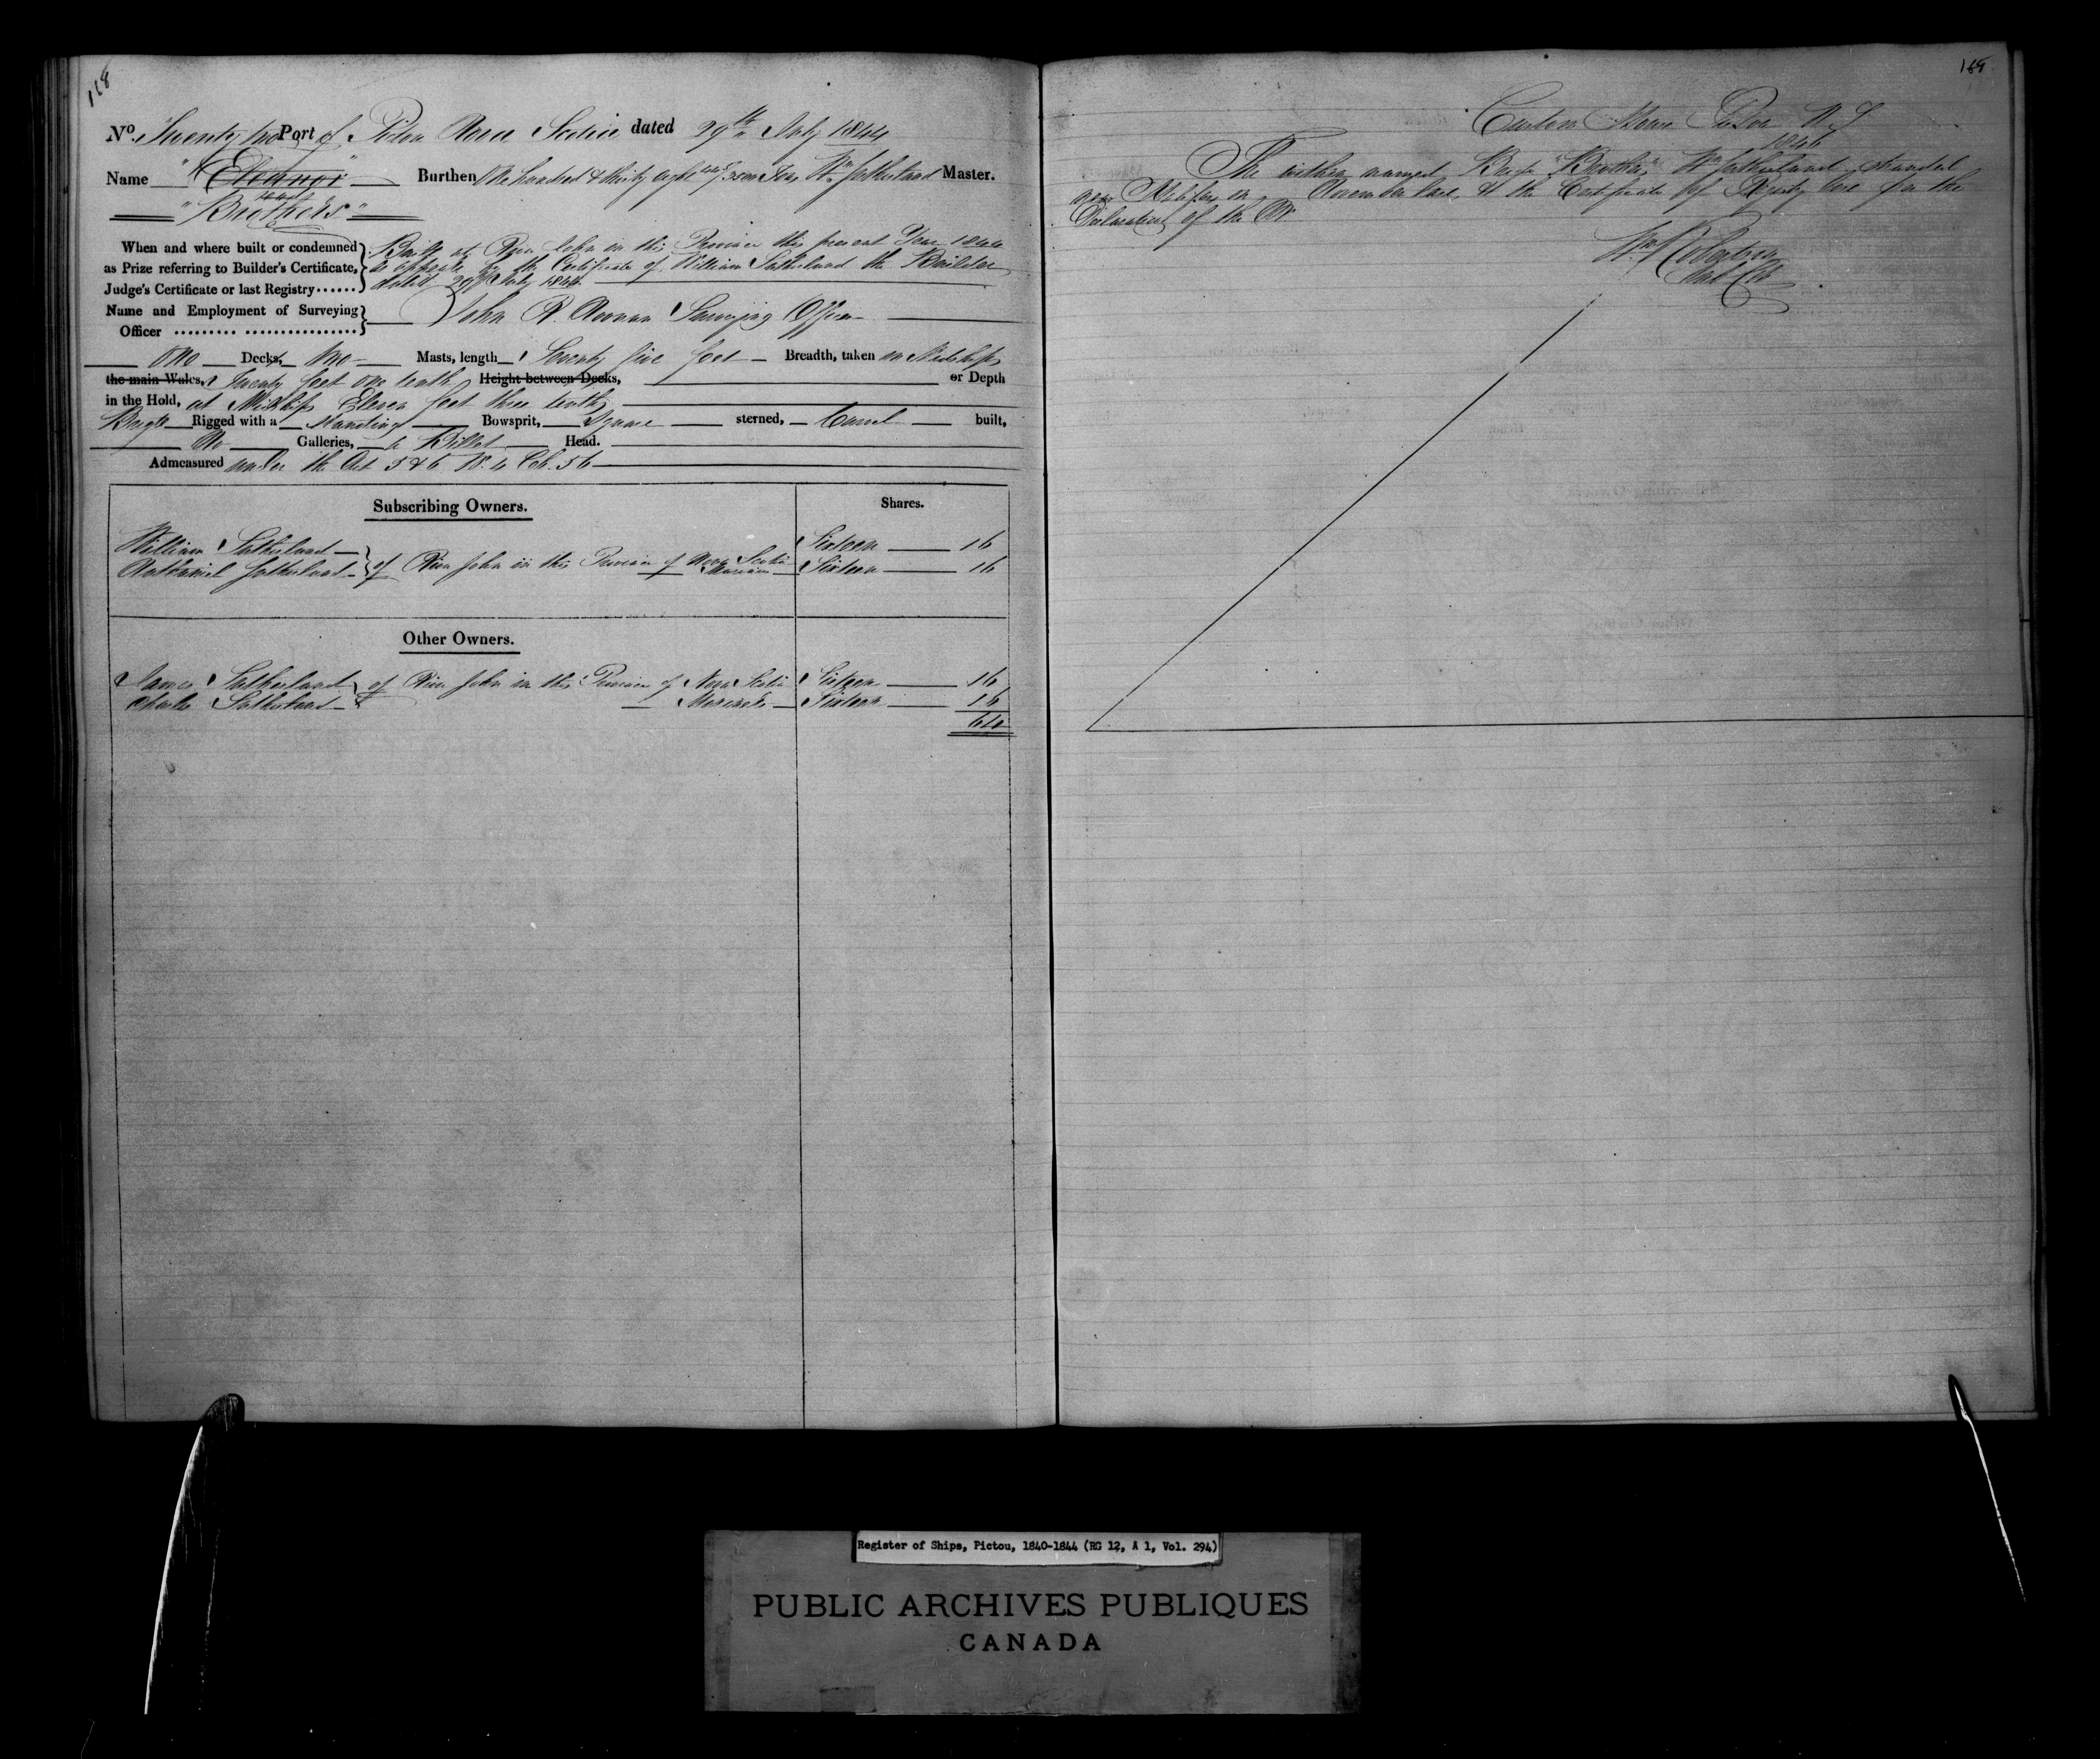 168
No. Twenty two Port of Pictou Nova Scotia dated 29th July 1844
Name "Eleanor" Burthen One hundred & thirty eight Tons Wm Sutherland Master.
"Brothers"
When and where built or condemned
as Prize referring to Builder's Certificate,
Judge's Certificate or last Registry......
Built at River John in this Province this present Year 1844
as appears by the Certificate of William Sutherland the Builder
dated 29th July 1844
Name and Employment of Surveying
Officer ......... ................
John R. Noonan Surveying Officer
One Decks, Two Masts, length Seventy five feet Breadth, taken in Midships
the main Wales, Twenty feet one tenth Height between Decks, or Depth
in the Hold, at Midships Eleven feet three tenths
Brigt. Rigged with a Standing Bowsprit, Square sterned, Carvel built,
No Galleries, a Billet Head.
Admeasured under the Act 5 & 6 W. 4 Ch. 56
Subscribing Owners. Shares.
William Sutherland Sixteen 16
Nathaniel Sutherland of River John in this Province of Nova Scotia Sixteen 16
Other Owners.
James Sutherland of River John in this Province of Nova Scotia Sixteen 16
Charles Sutherland Mariners Sixteen 16
64
169
Custom House Pictou N S
1846
The within named Brigt "Brothers" Wm Sutherland stranded
near in November last, & the Certificate of Registry lost per the
Declaration of the
Wm Robertson
Register of Ships, Pictou, 1840-1844 (RG 12, A 1, Vol. 294)
PUBLIC ARCHIVES PUBLIQUES
CANADA